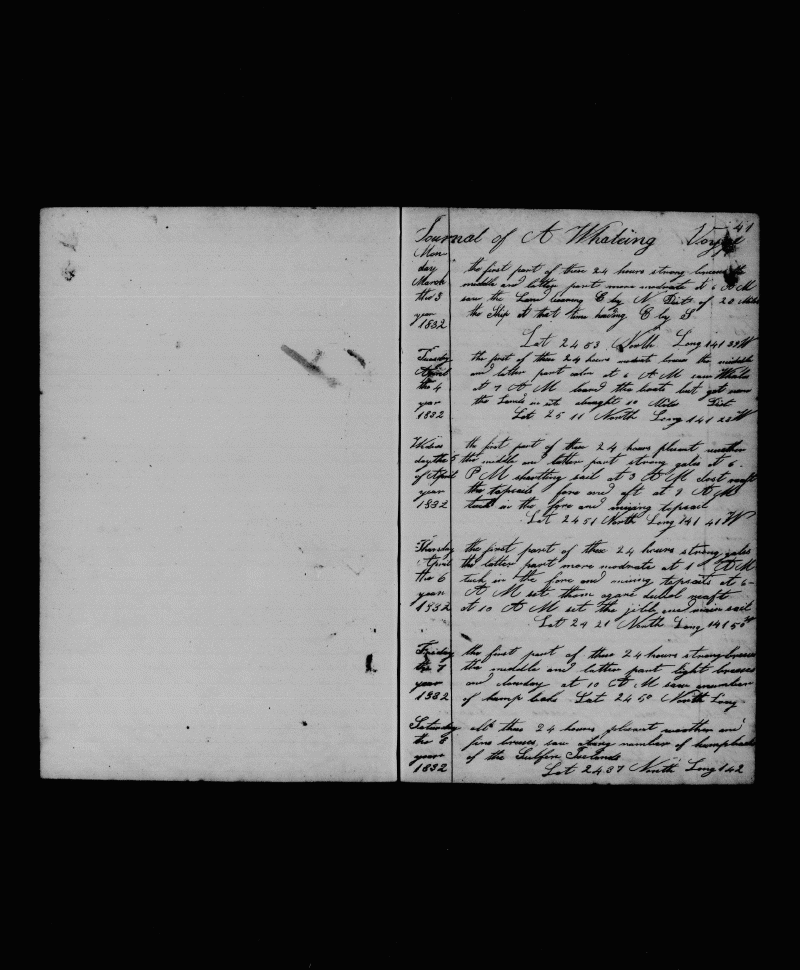 41
Journal of A Whaleing Voyge
Mon
day the first part of these 24 hours strong breeses the
March middle and latter part more moderate at 6 A M
the 3 saw the Land bearing E by N Dist of 20 Miles
year the Ship at that time heding E by S
1832
Lat 24 53 North Long 141 33 W
Tuesday the first of these 24 hours modrate breses the middle
April and latter part calm at 6 A M saw Whales
the 4 at 7 A M lowerd the boats but got none
year the Land in site about 10 Mile Dist
1832 Lat 25 11 North Long 141 23 W
Wednes the first part of these 24 hours plesant weather
day the 5 the middle and latter part strong gales at 6
of April P M shortting sail at 3 A M clost reaft
year the topsails fore and aft at 9 A M
1832 tuck in the fore and mizing topsail
Lat 24 51 North Long 141 41 W
Thursday the first part of these 24 hours strong gales
April the latter part more modrate at 1 A M
the 6 tuck in the fore and mizing topsails at 6
year A M set them agane dubel reaft
1832 at 10 A M set the jibb and main sail
Lat 24 21 North Long 141 50
Friday the first part of these 24 hours strong breeses
the 7 the middle and latter part light breeses
year and clowday at 10 A M saw anumber
1832 of hump backs Lat 24 50 North Long
Saturday all these 24 hours plesant weather and
the 8 fine breeses saw a number of humpbacks
year of the Sulfer Ieslands
1832 Lat 24 37 North Long 142